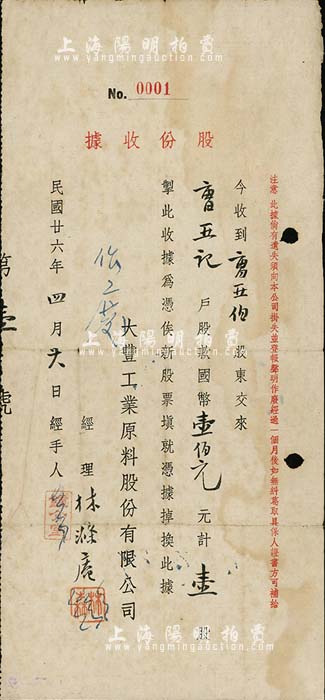 上海陽明拍賣
www.yangmingauction.com
No. 0001
股份收據
注意 此據倘有遺失須向本公司掛失並登報聲明作廢經過一個月後如無糾葛取具保人證書方可補給
今收到 曹亞伯 股東交來
曹亞記 戶股款國幣 壹佰元 元計 壹 股
掣此收據為憑俟新股票填就憑據掉換此據
大豐工業原料股份有限公司
經理 林滌庵
民國廿六年 四月 日經手人
第壹號
上海陽明拍賣
www.yangmingauction.com